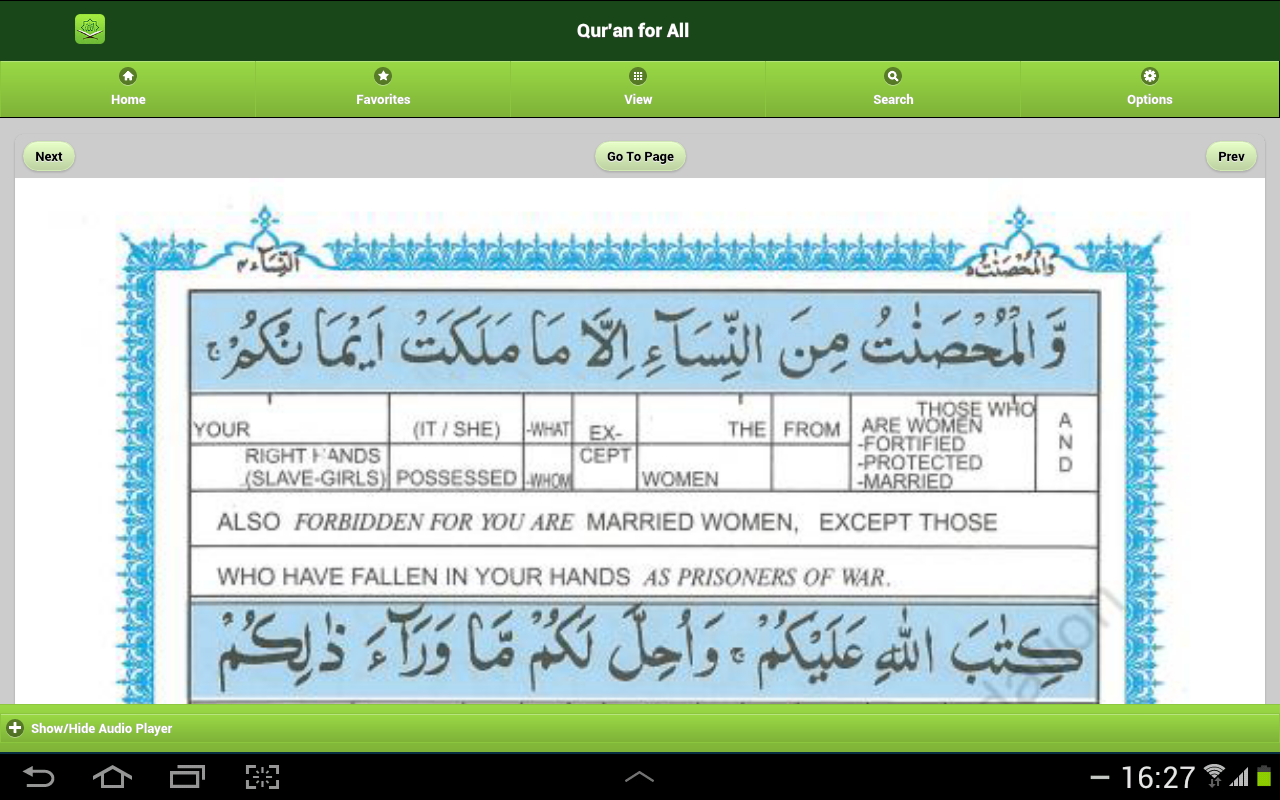 Qur'an for All
Home Favorites View Search Options
Next Go To Page Prev
النِّسَآء٤ وَالْمُحْصَنٰتُ٥
وَّالْمُحْصَنٰتُ مِنَ النِّسَآءِ اِلَّا مَا مَلَكَتْ اَيْمَانُكُمْ ۚ
YOUR (IT / SHE) -WHAT EX- THE FROM THOSE WHO A
ARE WOMEN N
-FORTIFIED D
RIGHT HANDS CEPT -PROTECTED
(SLAVE-GIRLS) POSSESSED -WHOM WOMEN -MARRIED
ALSO FORBIDDEN FOR YOU ARE MARRIED WOMEN, EXCEPT THOSE
WHO HAVE FALLEN IN YOUR HANDS AS PRISONERS OF WAR.
كِتٰبَ اللّٰهِ عَلَيْكُمْ ۚ وَاُحِلَّ لَكُمْ مَّا وَرَآءَ ذٰلِكُمْ
Show/Hide Audio Player
16:27